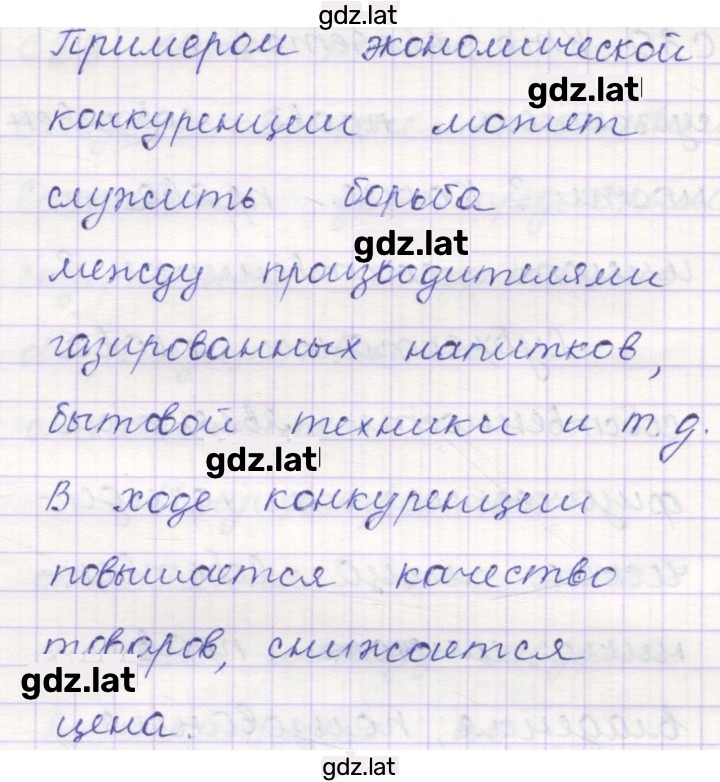 gdz.lat
Примером экономической
gdz.lat
конкуренции может
служить борьба
gdz.lat
между производителями
газированных напитков,
бытовой техники и т.д.
gdz.lat
В ходе конкуренции
повышается качество
товаров, снижается
gdz.lat
цена.
gdz.lat